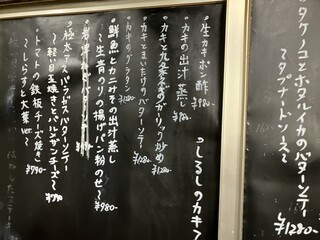 タケノコとホタルイカのバターソテー
〜タプナードソース〜
¥1280-
っしるしのカキ〉
・生カキポン酢 ¥980-
・カキの出汁蒸し ¥980-
・カキと九条ネギのガーリック炒め ¥1280-
・カキとまいたけのバターソテー ¥1280-
・カキのグラタン ¥1280-
・鮮魚とカニみその出汁蒸し
〜生青のりの揚げパン粉のせ〜 ¥980-
・極太アスパラガスバターソテー
〜軽い目玉焼きとパルメザンチーズ〜
・トマトの鉄板チーズ焼き ¥790-
〜しらすと大葉ver.〜